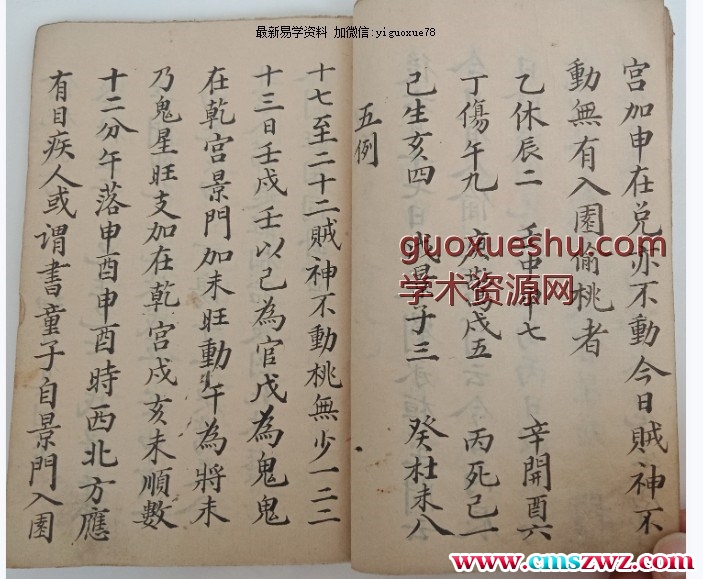 最新易学资料 加微信:yiguoxue78
宫加申在兑亦不動今日賊神不
動無有入園偷桃者
乙休辰二 壬中申七 辛開酉六
丁傷午九 庚驚戌五 丙死己一
己生亥四 景子三 癸杜未八
五例
十七至二十二賊神不動桃無少一二三
十三日壬戍壬以己為官戊為鬼鬼
在乾宫景門加未旺動午為將未
乃鬼星旺支加在乾宫戍亥未順數
十二分午落申酉申酉時西北方應
有目疾人或谓書童子自景門入園
guoxueshu.com
学术资源网
www.cmszwz.com